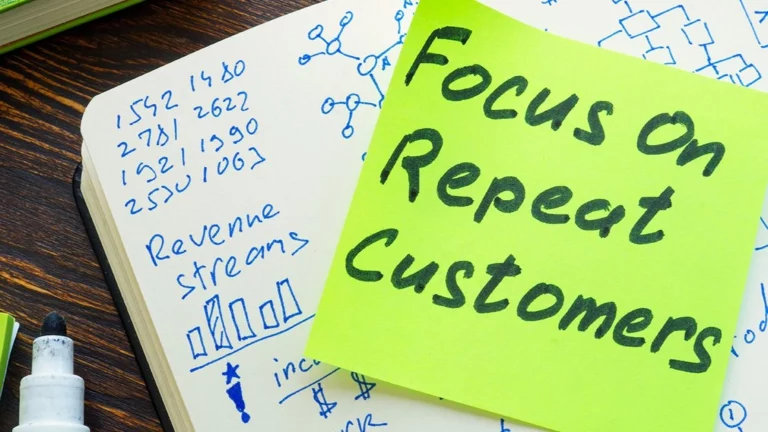 1542 1480
2781 2622
1921 1990
2530 1063
Revenue
streams
Focus On
Repeat
Customers
$ $